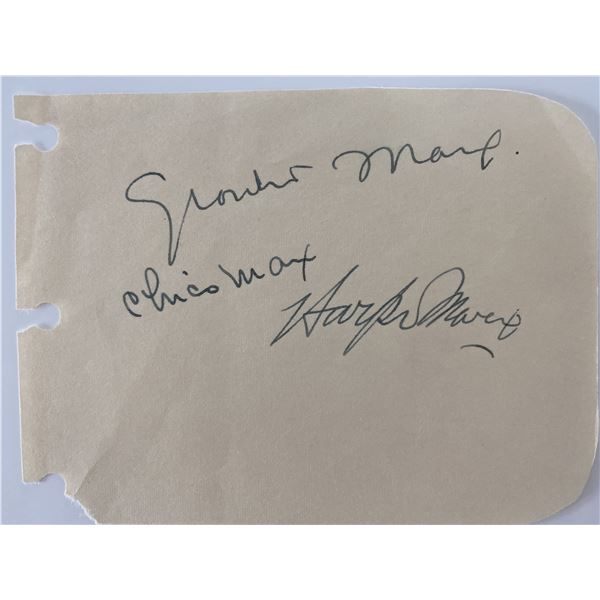 Groucho Marx.
Chico Marx
Harpo Marx